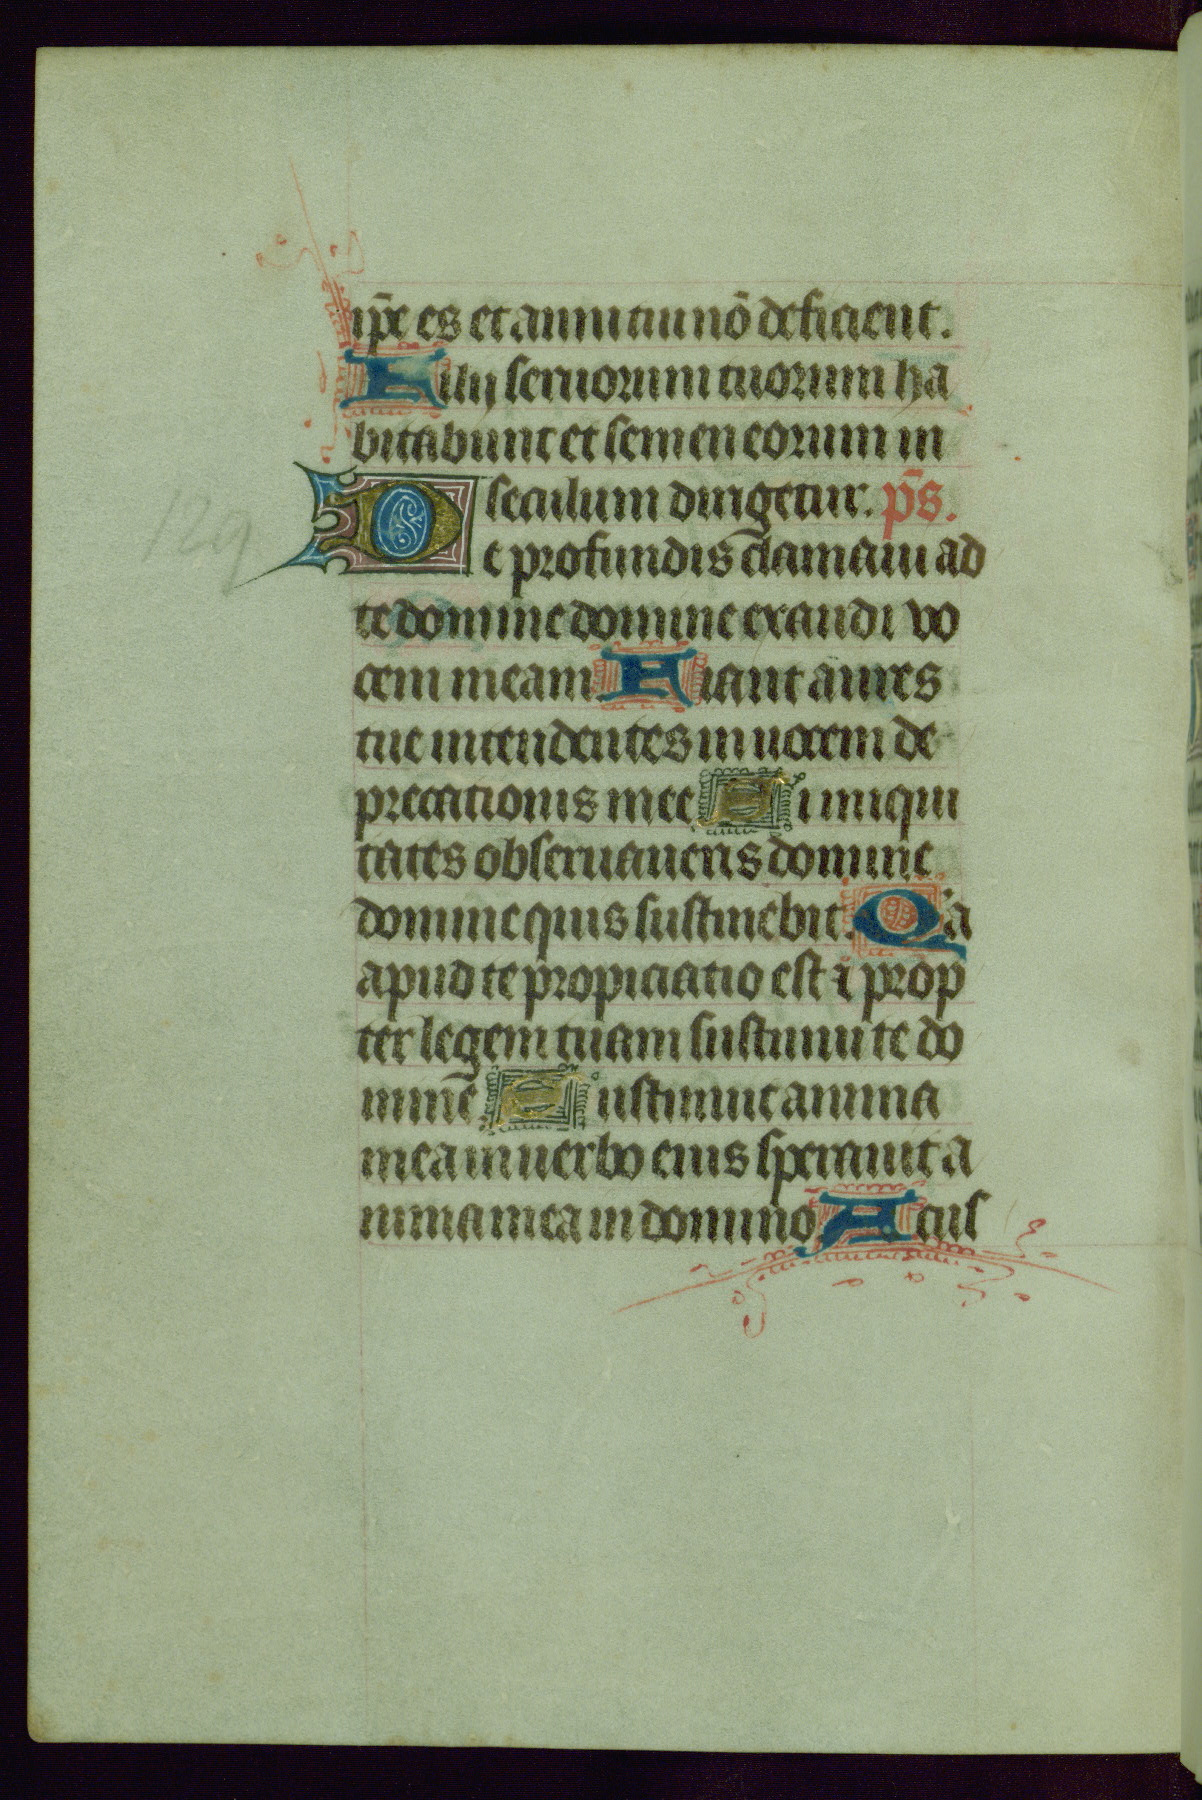 ip̄e es et anni tui nō deficient.
Filij seruorum tuorum ha
bitabunt et semen eorum in
seculum dirigetur. p̄s.
De profundis clamaui ad
te domine domine exaudi vo
cem meam. Fiant aures
tue intendentes in uocem de
precationis mee Si iniqui
tates obseruaueris domine
domine quis sustinebit. Qa
apud te propiciatio est ⁊ prop
ter legem tuam sustinui te do
mine Sustinuit anima
mea in uerbo eius sperauit a
nima mea in domino A cus
129